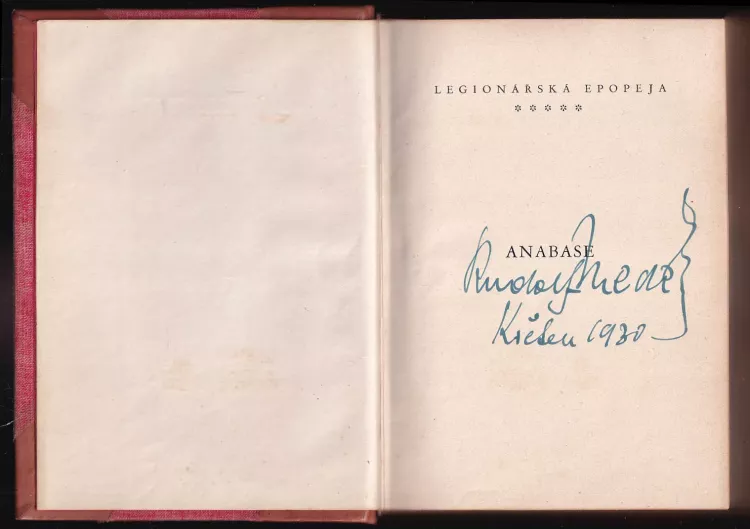 LEGIONÁŘSKÁ EPOPEJA
*****
ANABASE
Rudolf Medek
Květen 1930